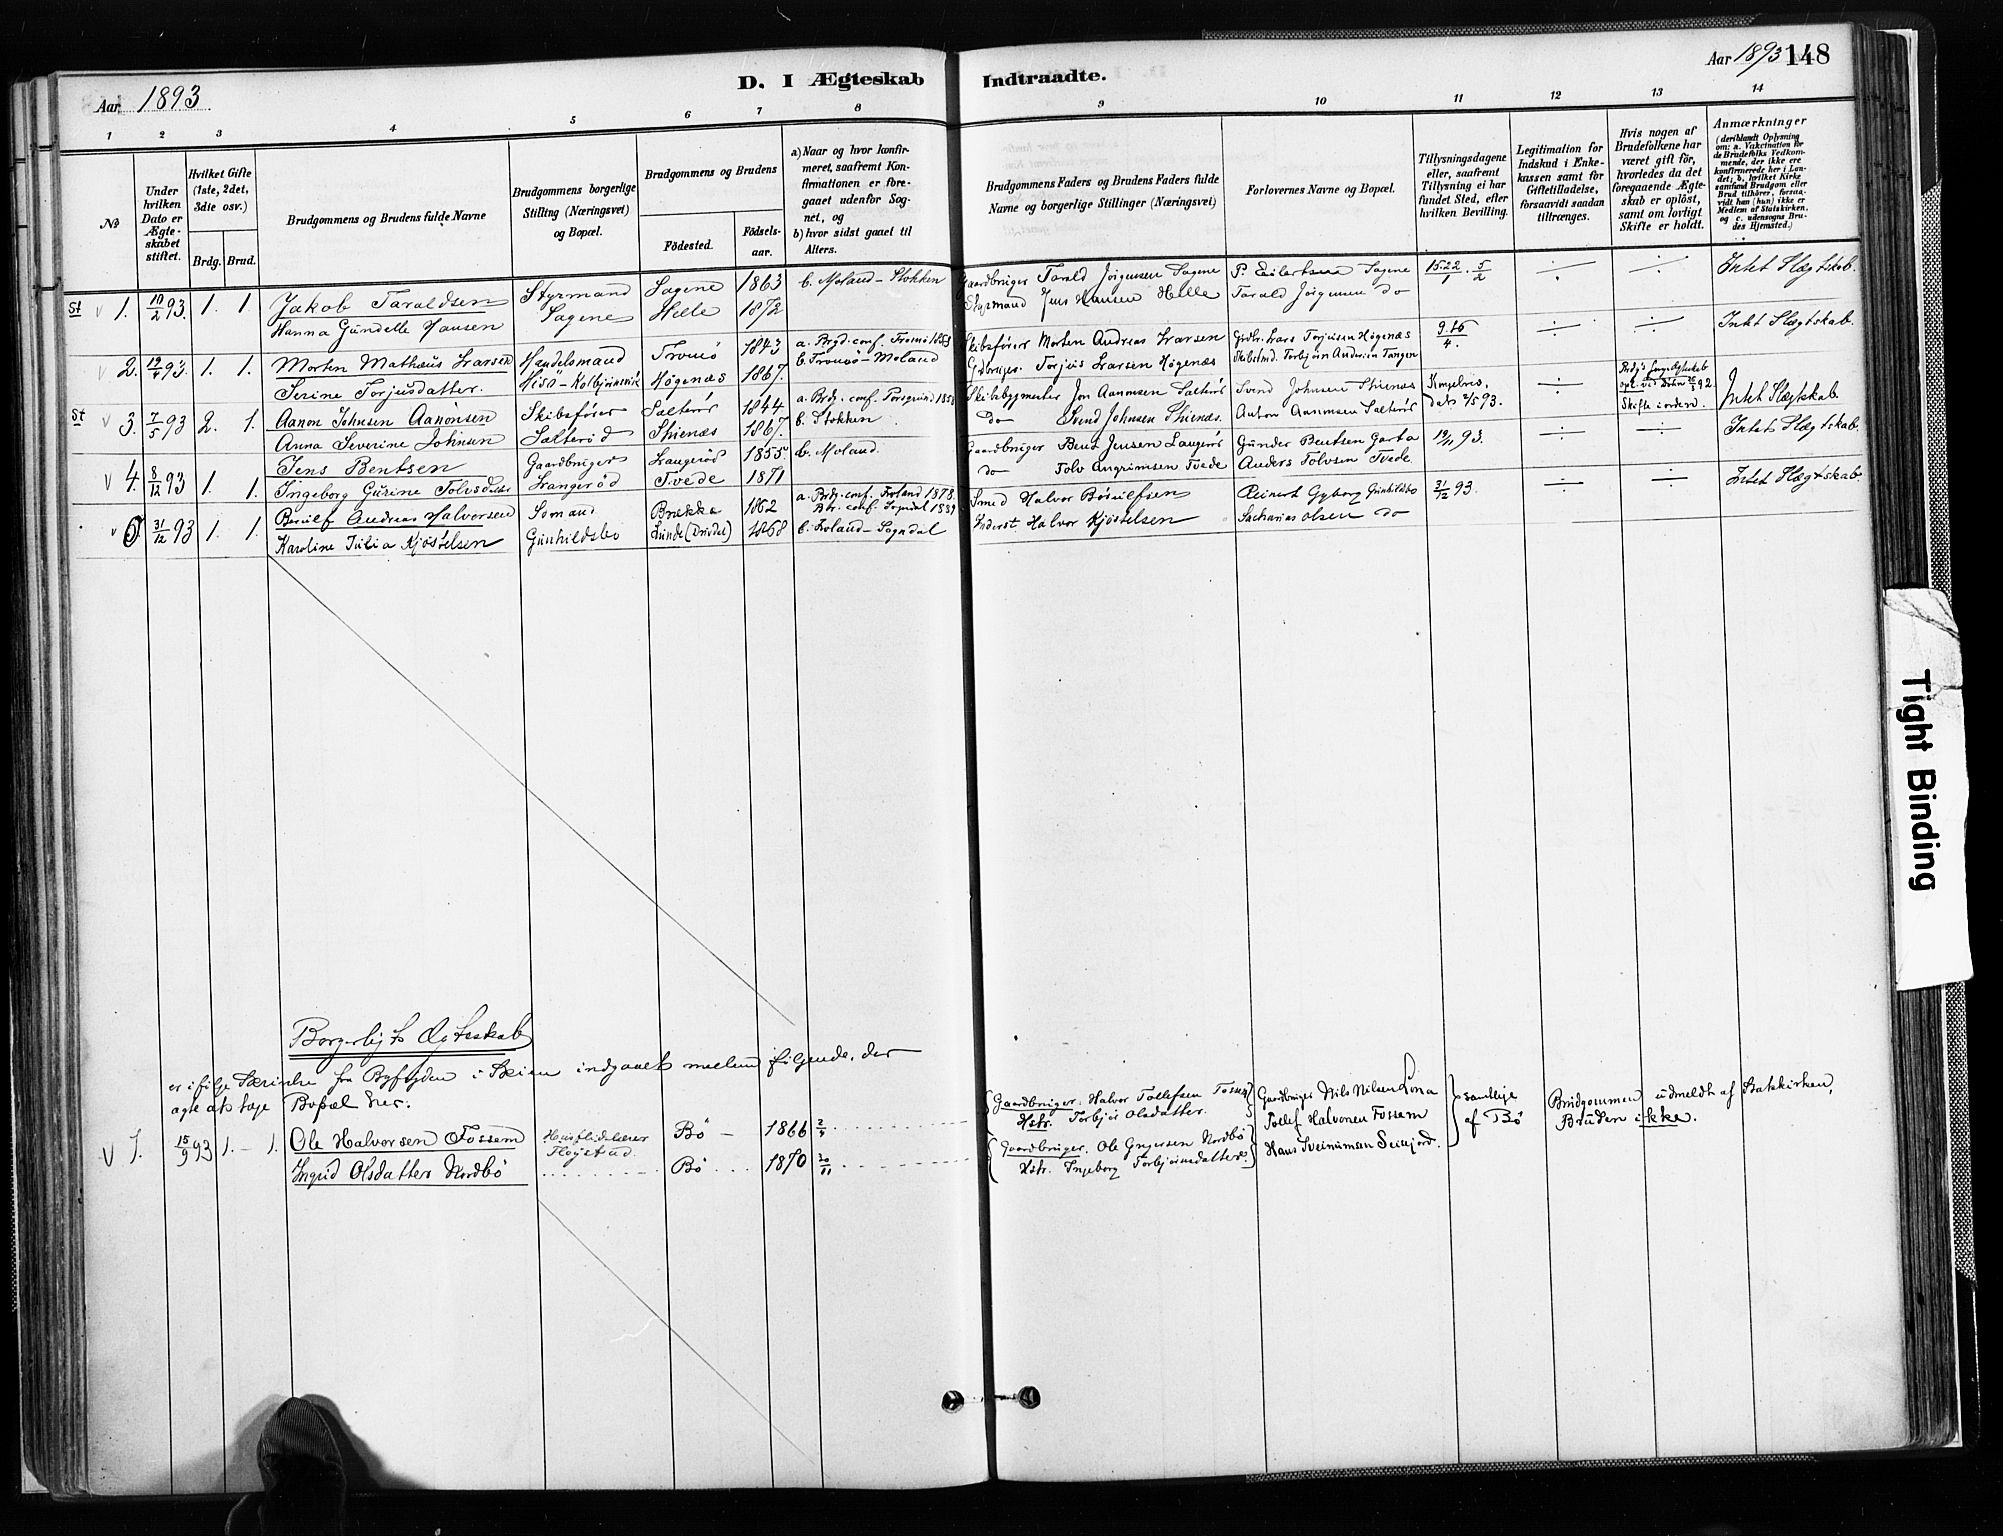 D. I Ægteskab Indtraadte.
Aar 1893
Aar 1893 148
1 2 3 4 5 6 7 8 9 10 11 12 13 14
No
Under hvilken Dato er Ægteskabet stiftet.
Hvilket Gifte (1ste, 2det, 3die osv.)
Brdg. Brud.
Brudgommens og Brudens fulde Navne
Brudgommens borgerlige Stilling (Næringsvei) og Bopæl.
Brudgommens og Brudens
Födested.
Födsels-aar.
a) Naar og hvor konfirmeret, saafremt Konfirmationen er foregaaet udenfor Sognet, og
b) hvor sidst gaaet til Alters.
Brudgommens Faders og Brudens Faders fulde Navne og borgerlige Stillinger (Næringsvei)
Forlovernes Navne og Bopæl.
Tillysningsdagene eller, saafremt Tillysning ei har fundet Sted, efter hvilken Bevilling.
Legitimation for Indskud i Enkekassen samt for Giftetilladelse, forsaavidt saadan tiltrænges.
Hvis nogen af Brudefolkene har været gift för, hvorledes da det foregaaende Ægteskab er oplöst, samt om lovligt Skifte er holdt.
Anmærkninger
(deriblandt Oplysning om: a. Vakcination for de Brudefolks Vedkommende, der ikke ere konfirmerede her i Landet; b. hvilket Kirkesamfund Brudgom eller Brud tilhörer, forsaavidt han (hun) ikke er Medlem af Statskirken, og c. udensogns Brudes Hjemsted.)
St v 1. 10/2 93. 1. 1. Jakob Taraldsen Styrmand Sagene 1863 b. Moland - Stokken Gaardbruger Tarald Jörgensen Sagene P. Eilertsen Sagene 15. 22/1. 5/2 Intet Slægtskab.
Hanna Gundelle Hansen Sagene Helle 1872 Styrmand Jens Hansen Helle Tarald Jörgensen do
v 2. 12/4 93. 1. 1. Morten Mathæus Larsen Handelsmand Tromö 1843 a. Brgd. conf. Tromö 1858 Skibsförer Morten Andreas Larsen Lars Torjussen Högenæs 9. 16/4. Intet Slægtskab.
Serine Torjusdatter. Hisö - Kolbjörnsvik Högenæs 1867. b. Tromö - Moland Torjus Larsen Högenæs Torbjörn Andersen Tangen
St v 3. 7/5 93 2. 1. Aanon Johnsen Aanonsen Skibsförer Salteröd 1844 a. Brdg. conf. Porsgrund 1858 Skibsbygmester Jon Aanonsen Salteröd Svend Johnsen Skienæs Skifte i orden. Intet Slægtskab.
Anna Severine Johnsen Salteröd Skienæs 1867. b. Stokken do Svend Johnsen Skienæs. Anton Aanonsen Salteröd
v 4. 8/12 93 1. 1. Jens Bentsen Gaardbruger Langeröd 1855 b. Moland. Gaardbruger Bent Jensen Langeröd Gunder Bentsen Garta 19/11 93. Intet Slægtskab.
Ingeborg Gurine Tolvsdatter Langeröd Tvede 1871 do Tolv Angrimsen Tvede Anders Tolvsen Tvede.
v 5 31/12 93 1. 1. Andreas Halvorsen Sömand Brekke 1862 a. Brdg. conf. Froland 1878. Smed Halvor Reinert Gyborg Gunhildsbo 31/12 93. Intet Slægtskab.
Karoline Julia Kjöstelsen Gunhildsbo Lunde 1868 b. Froland - Sogndal Halvor Kjöstelsen Sacharias Olsen do
Borgerligt Ægteskab
er ifölge Skrivelse fra Byfogden i Skien indgaaet mellem fölgende, der
agte at tage Bopæl her.
v 1. 15/9 93 1. - 1. Ole Halvorsen Fossem Husflidslærer Bö - 1866 2/4 Gaardbruger. Halvor Tollefsen Fossem Gaardbruger Nils Nilsen Lona samtlige af Bö Brudgommen udmeldt af Statskirken,
Hstr. Torbjör Olsdatter. Tollef Halvorsen Fossem Bruden ikke.
Ingrid Olsdatter Nordbö Bö 1870 30/11 Gaardbruger. Ole Nordbö Hans Seljord.
Hstr. Ingeborg Torbjörnsdatter
Tight Binding